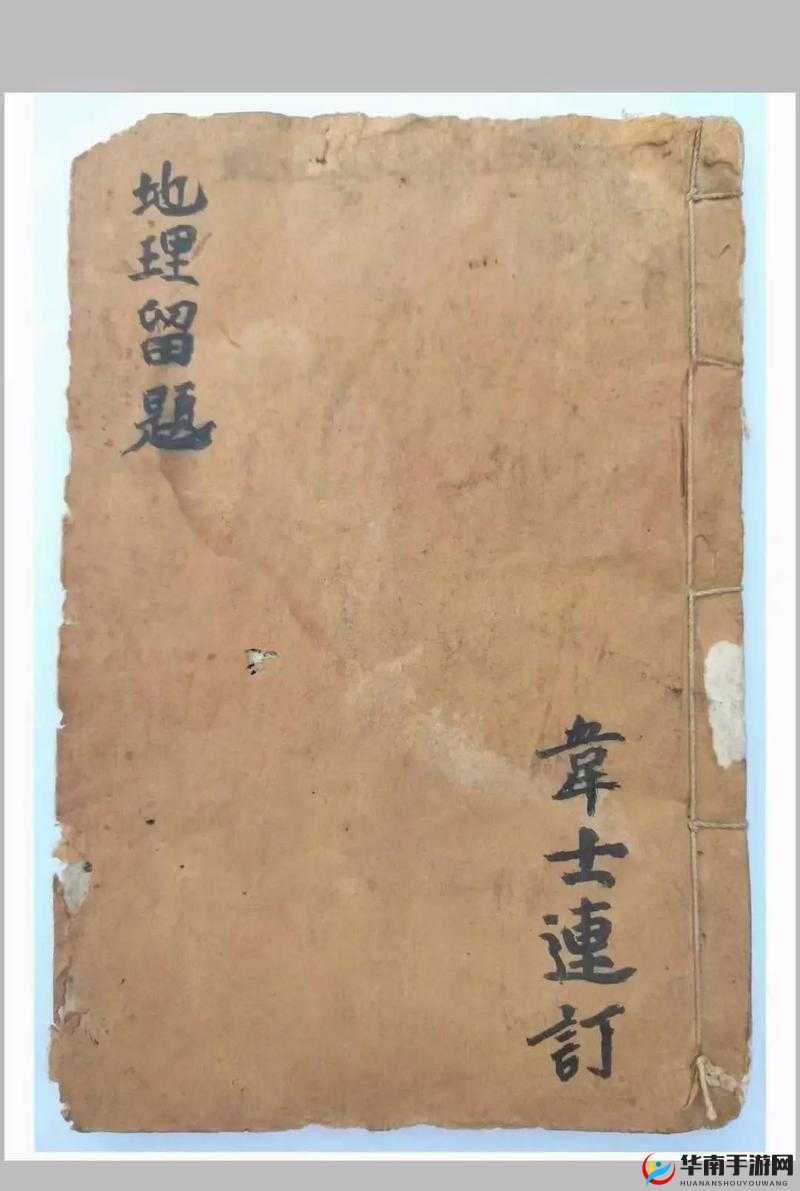 地理留題
韋士連訂
华南手游网
HUANANSHOUYOUWANG